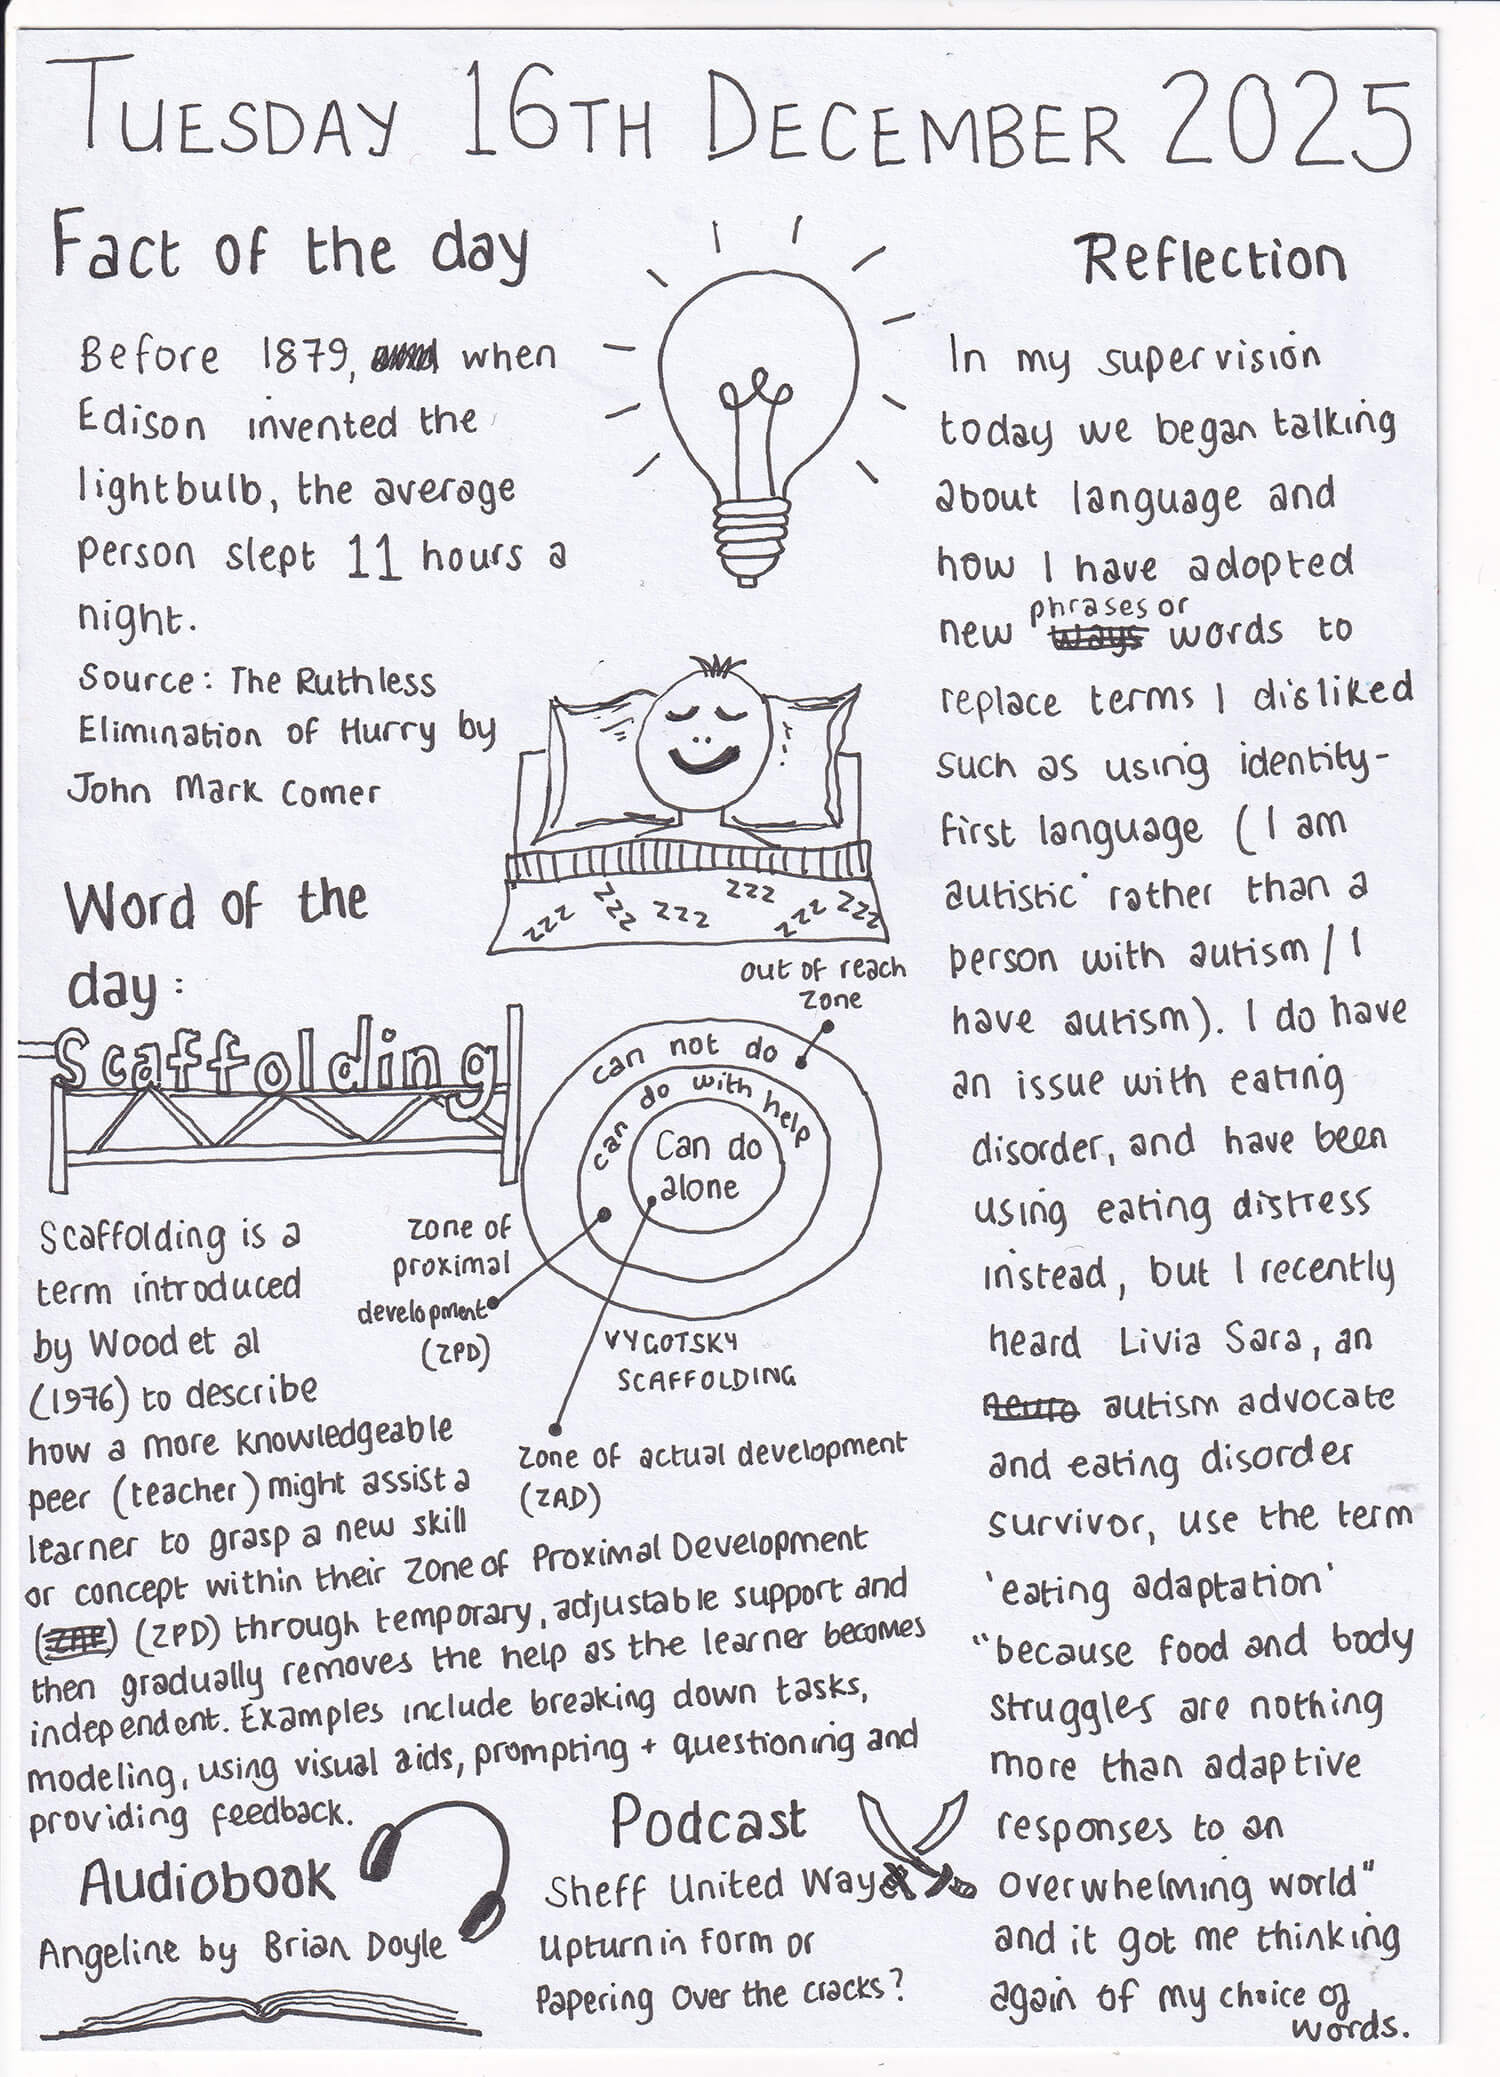 TUESDAY 16TH DECEMBER 2025
Fact of the day
Before 1879, when
Edison invented the
lightbulb, the average
person slept 11 hours a
night.
Source: The Ruthless
Elimination of Hurry by
John Mark Comer
zzz zzz zzz zzz zzz zzz
Word of the
day:
Scaffolding
out of reach
zone
can not do
can do with help
Can do
alone
zone of
proximal
development
(ZPD)
VYGOTSKY
SCAFFOLDING
zone of actual development
(ZAD)
Scaffolding is a
term introduced
by Wood et al
(1976) to describe
how a more knowledgeable
peer (teacher) might assist a
learner to grasp a new skill
or concept within their Zone of Proximal Development
(ZPD) through temporary, adjustable support and
then gradually removes the help as the learner becomes
independent. Examples include breaking down tasks,
modeling, using visual aids, prompting + questioning and
providing feedback.
Audiobook
Angeline by Brian Doyle
Podcast
Sheff United Way
Upturn in form or
Papering over the cracks?
Reflection
In my supervision
today we began talking
about language and
how I have adopted
phrases or
new ways words to
replace terms I disliked
such as using identity-
first language (I am
autistic' rather than a
person with autism / I
have autism). I do have
an issue with eating
disorder, and have been
using eating distress
instead, but I recently
heard Livia Sara, an
neuro autism advocate
and eating disorder
survivor, use the term
'eating adaptation'
"because food and body
struggles are nothing
more than adaptive
responses to an
overwhelming world"
and it got me thinking
again of my choice of
words.